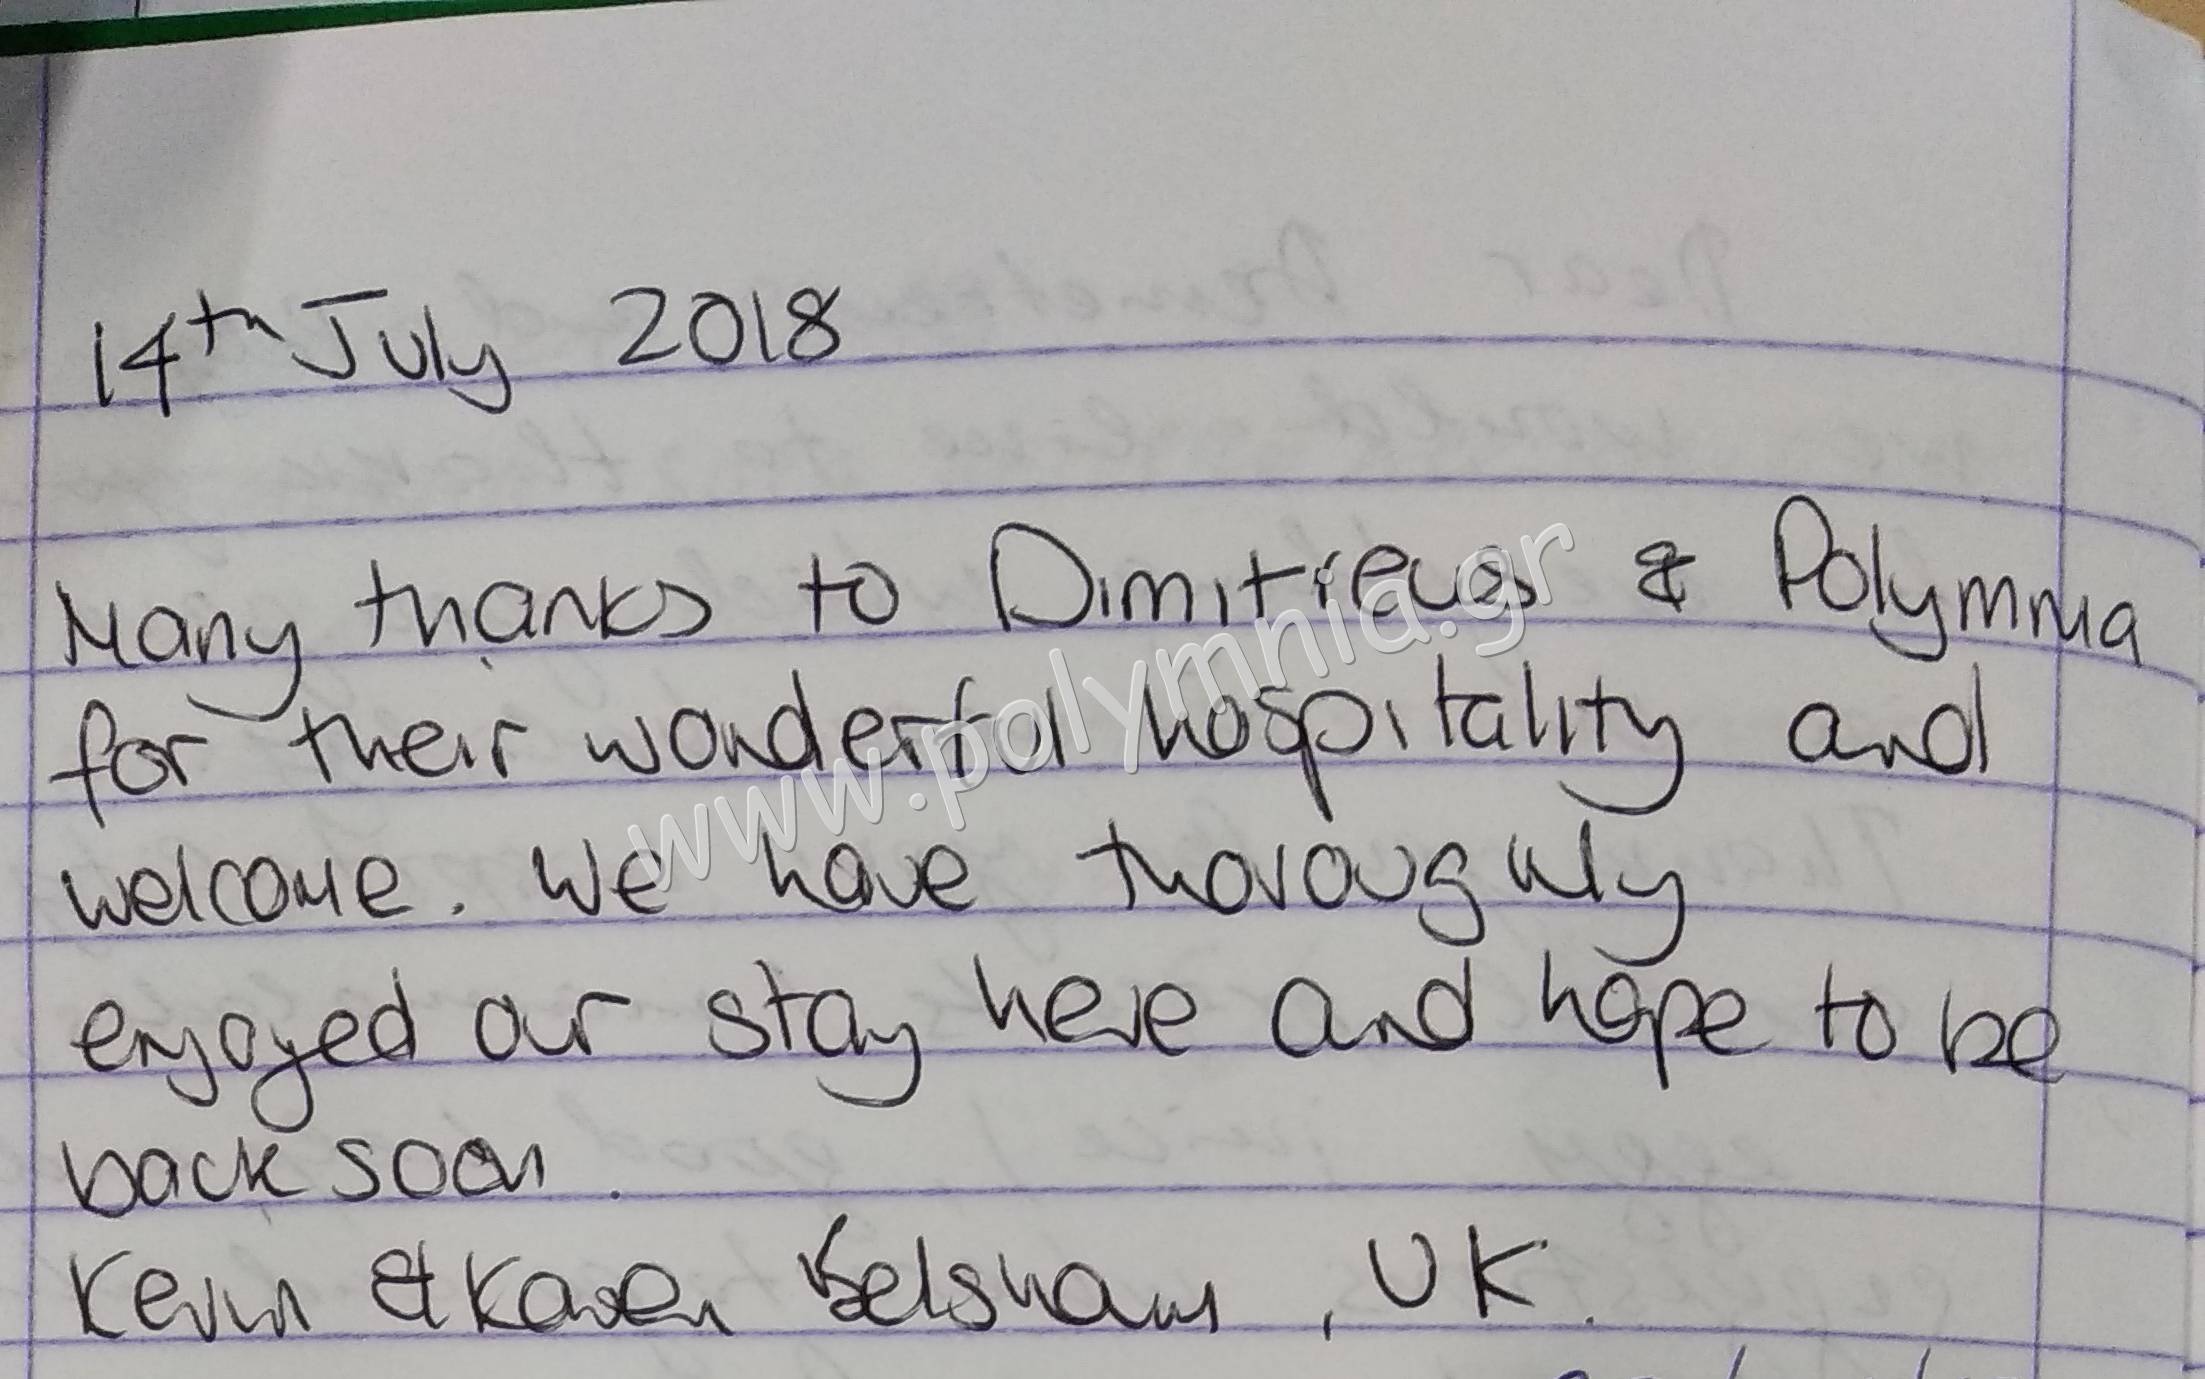 14th July 2018
Many thanks to Dimitrieus & Polymnia
for their wonderful hospitality and
welcome. We have thoroughly
enjoyed our stay here and hope to be
back soon.
Kevin & Karen Belsham, UK.
www.polymnia.gr